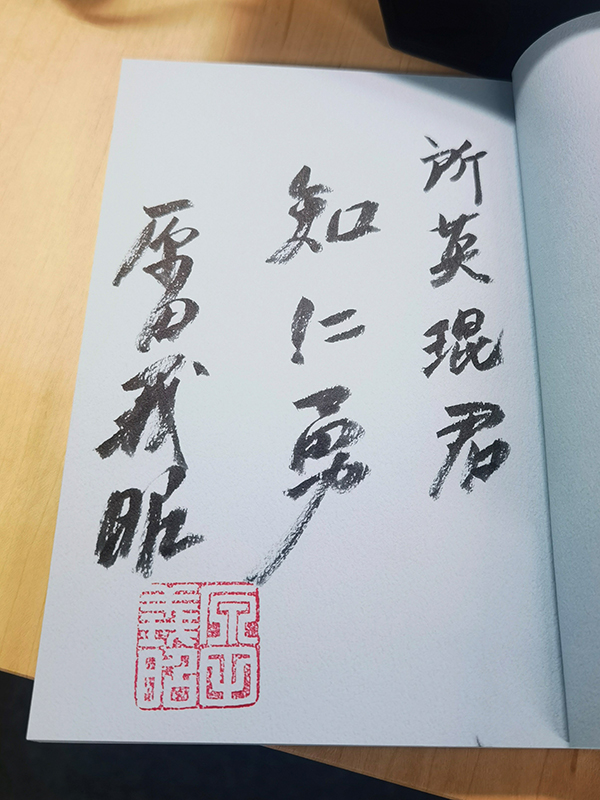 所英琨君
知仁勇
原田義昭
原田
義昭